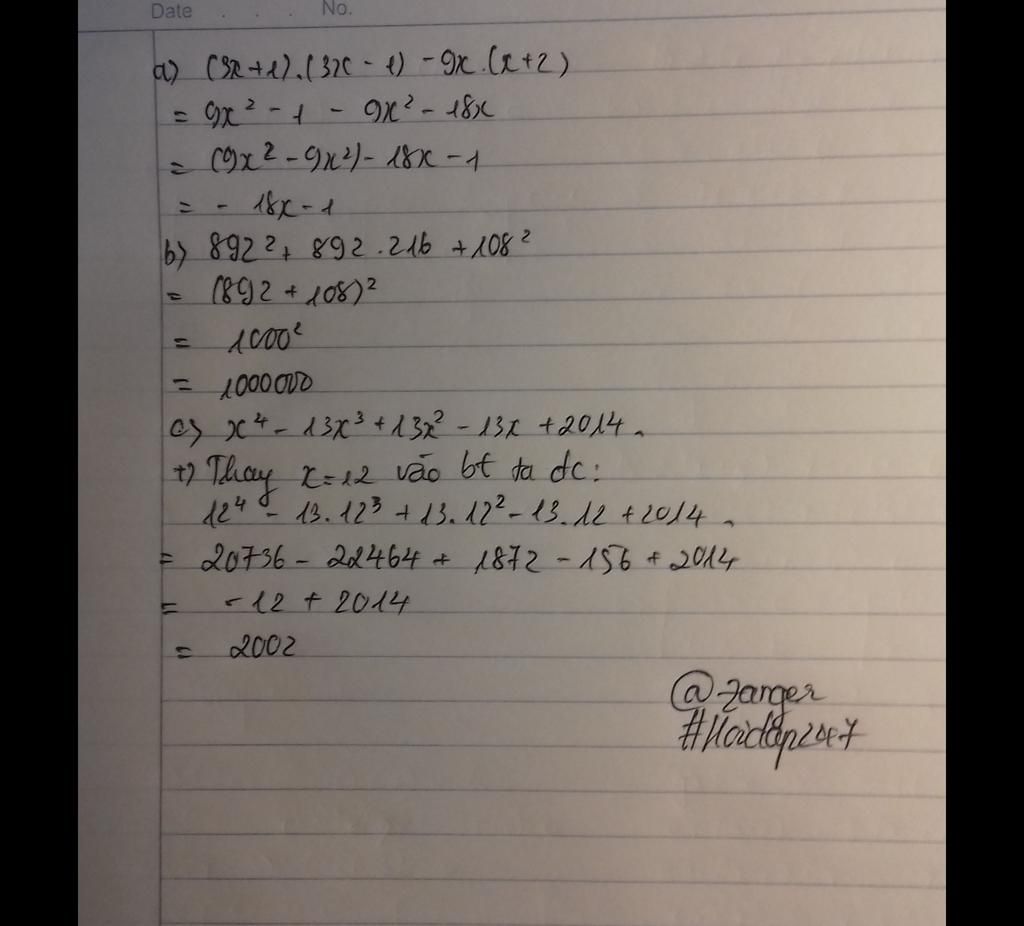 Date . . . No.
a) (3x+1).(3x-1) -9x.(x+2)
= 9x² - 1 - 9x² - 18x
= (9x² - 9x²) - 18x - 1
= - 18x - 1
b) 892² + 892.216 + 108²
= (892 + 108)²
= 1000²
= 1000000
c) x⁴ - 13x³ + 13x² - 13x + 2014.
+) Thay x=12 vào bt ta dc:
12⁴ - 13.12³ + 13.12² - 13.12 + 2014.
= 20736 - 22464 + 1872 - 156 + 2014
= -12 + 2014
= 2002
@zanger
#Hoidap247